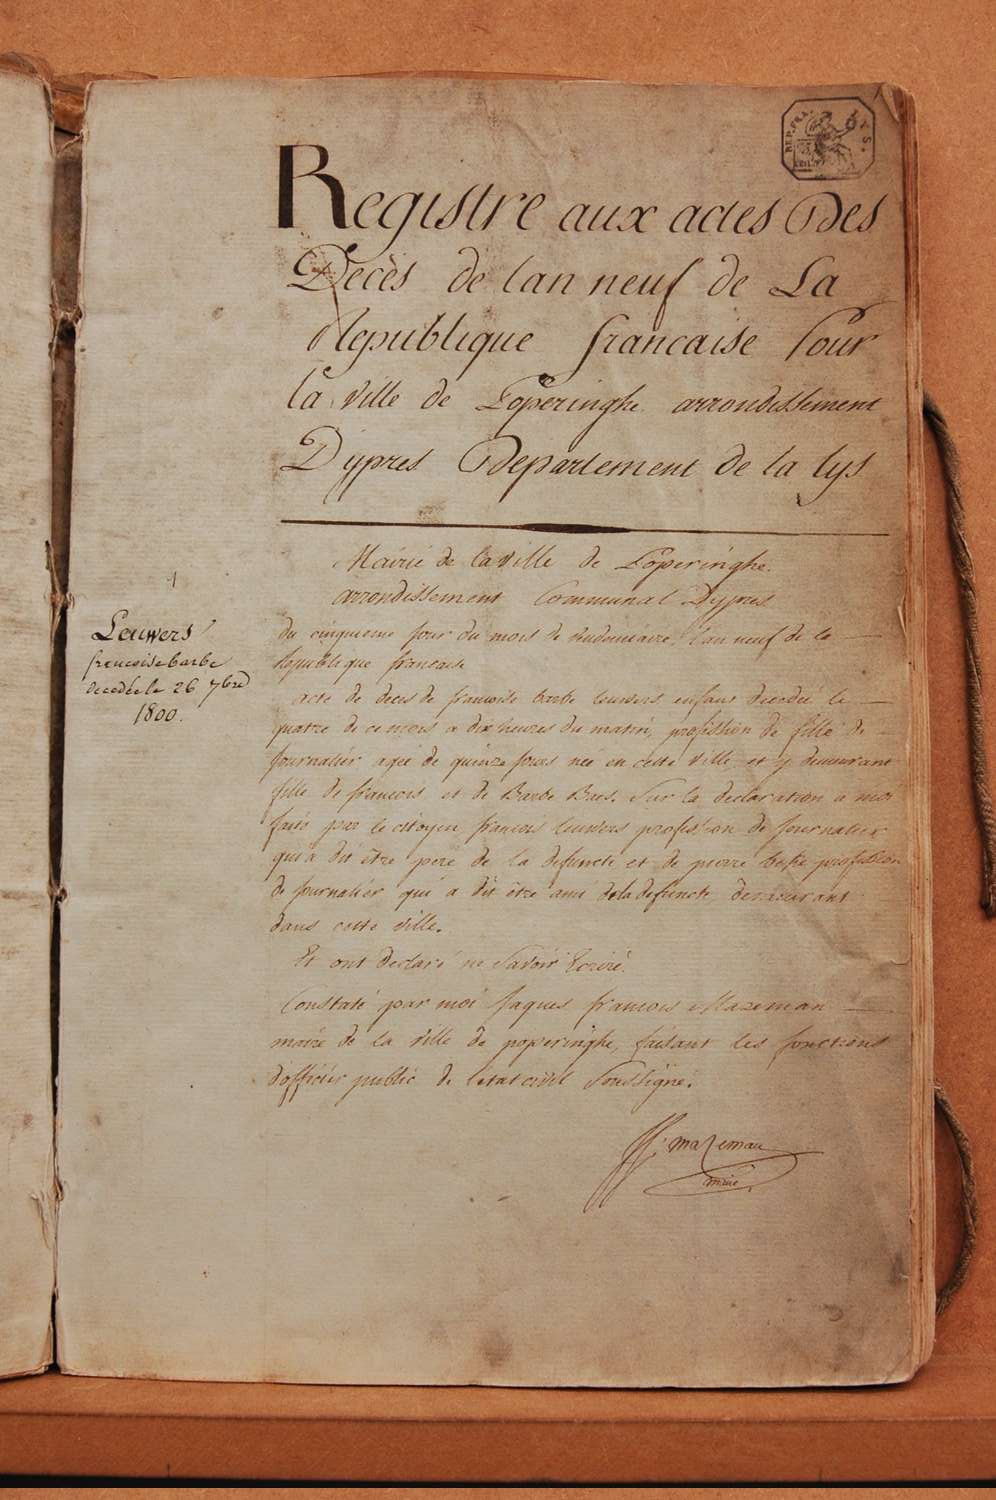 REP. FRA.
LYS.
Registre aux actes Des
Decès de lan neuf de La
Republique francaise Pour
la ville de Poperinghe arrondissement
Dypres Departement de la lys
Mairie de la ville de Poperinghe.
arrondissement Communal Dypres
1
Leuwers
francoise barbe
decedée le 26 7bre
1800.
du cinquieme jour du mois de vendemiaire, l'an neuf de la
Republique francaise
acte de deces de francoise barbe leuwers enfant decedée le
quatre de ce mois a dix heures du matin, profession de fille de
Journalier agée de quinze jours née en cette ville et y demeurant
fille de francois et de Barbe Baes. Sur la declaration a moi
faite par le citoyen francois leuwers profession de journalier
qui a dit être pere de la defuncte et de pierre profession
de journalier qui a dit être ami de la defuncte, demeurant
dans cette ville.
Et ont declaré ne Savoir Ecrire.
Constaté par moi Jaques francois Mazeman
maire de la ville de poperinghe, faisant les fonctions
dofficier public de letat civil Soussigné.
Mazeman
maire.